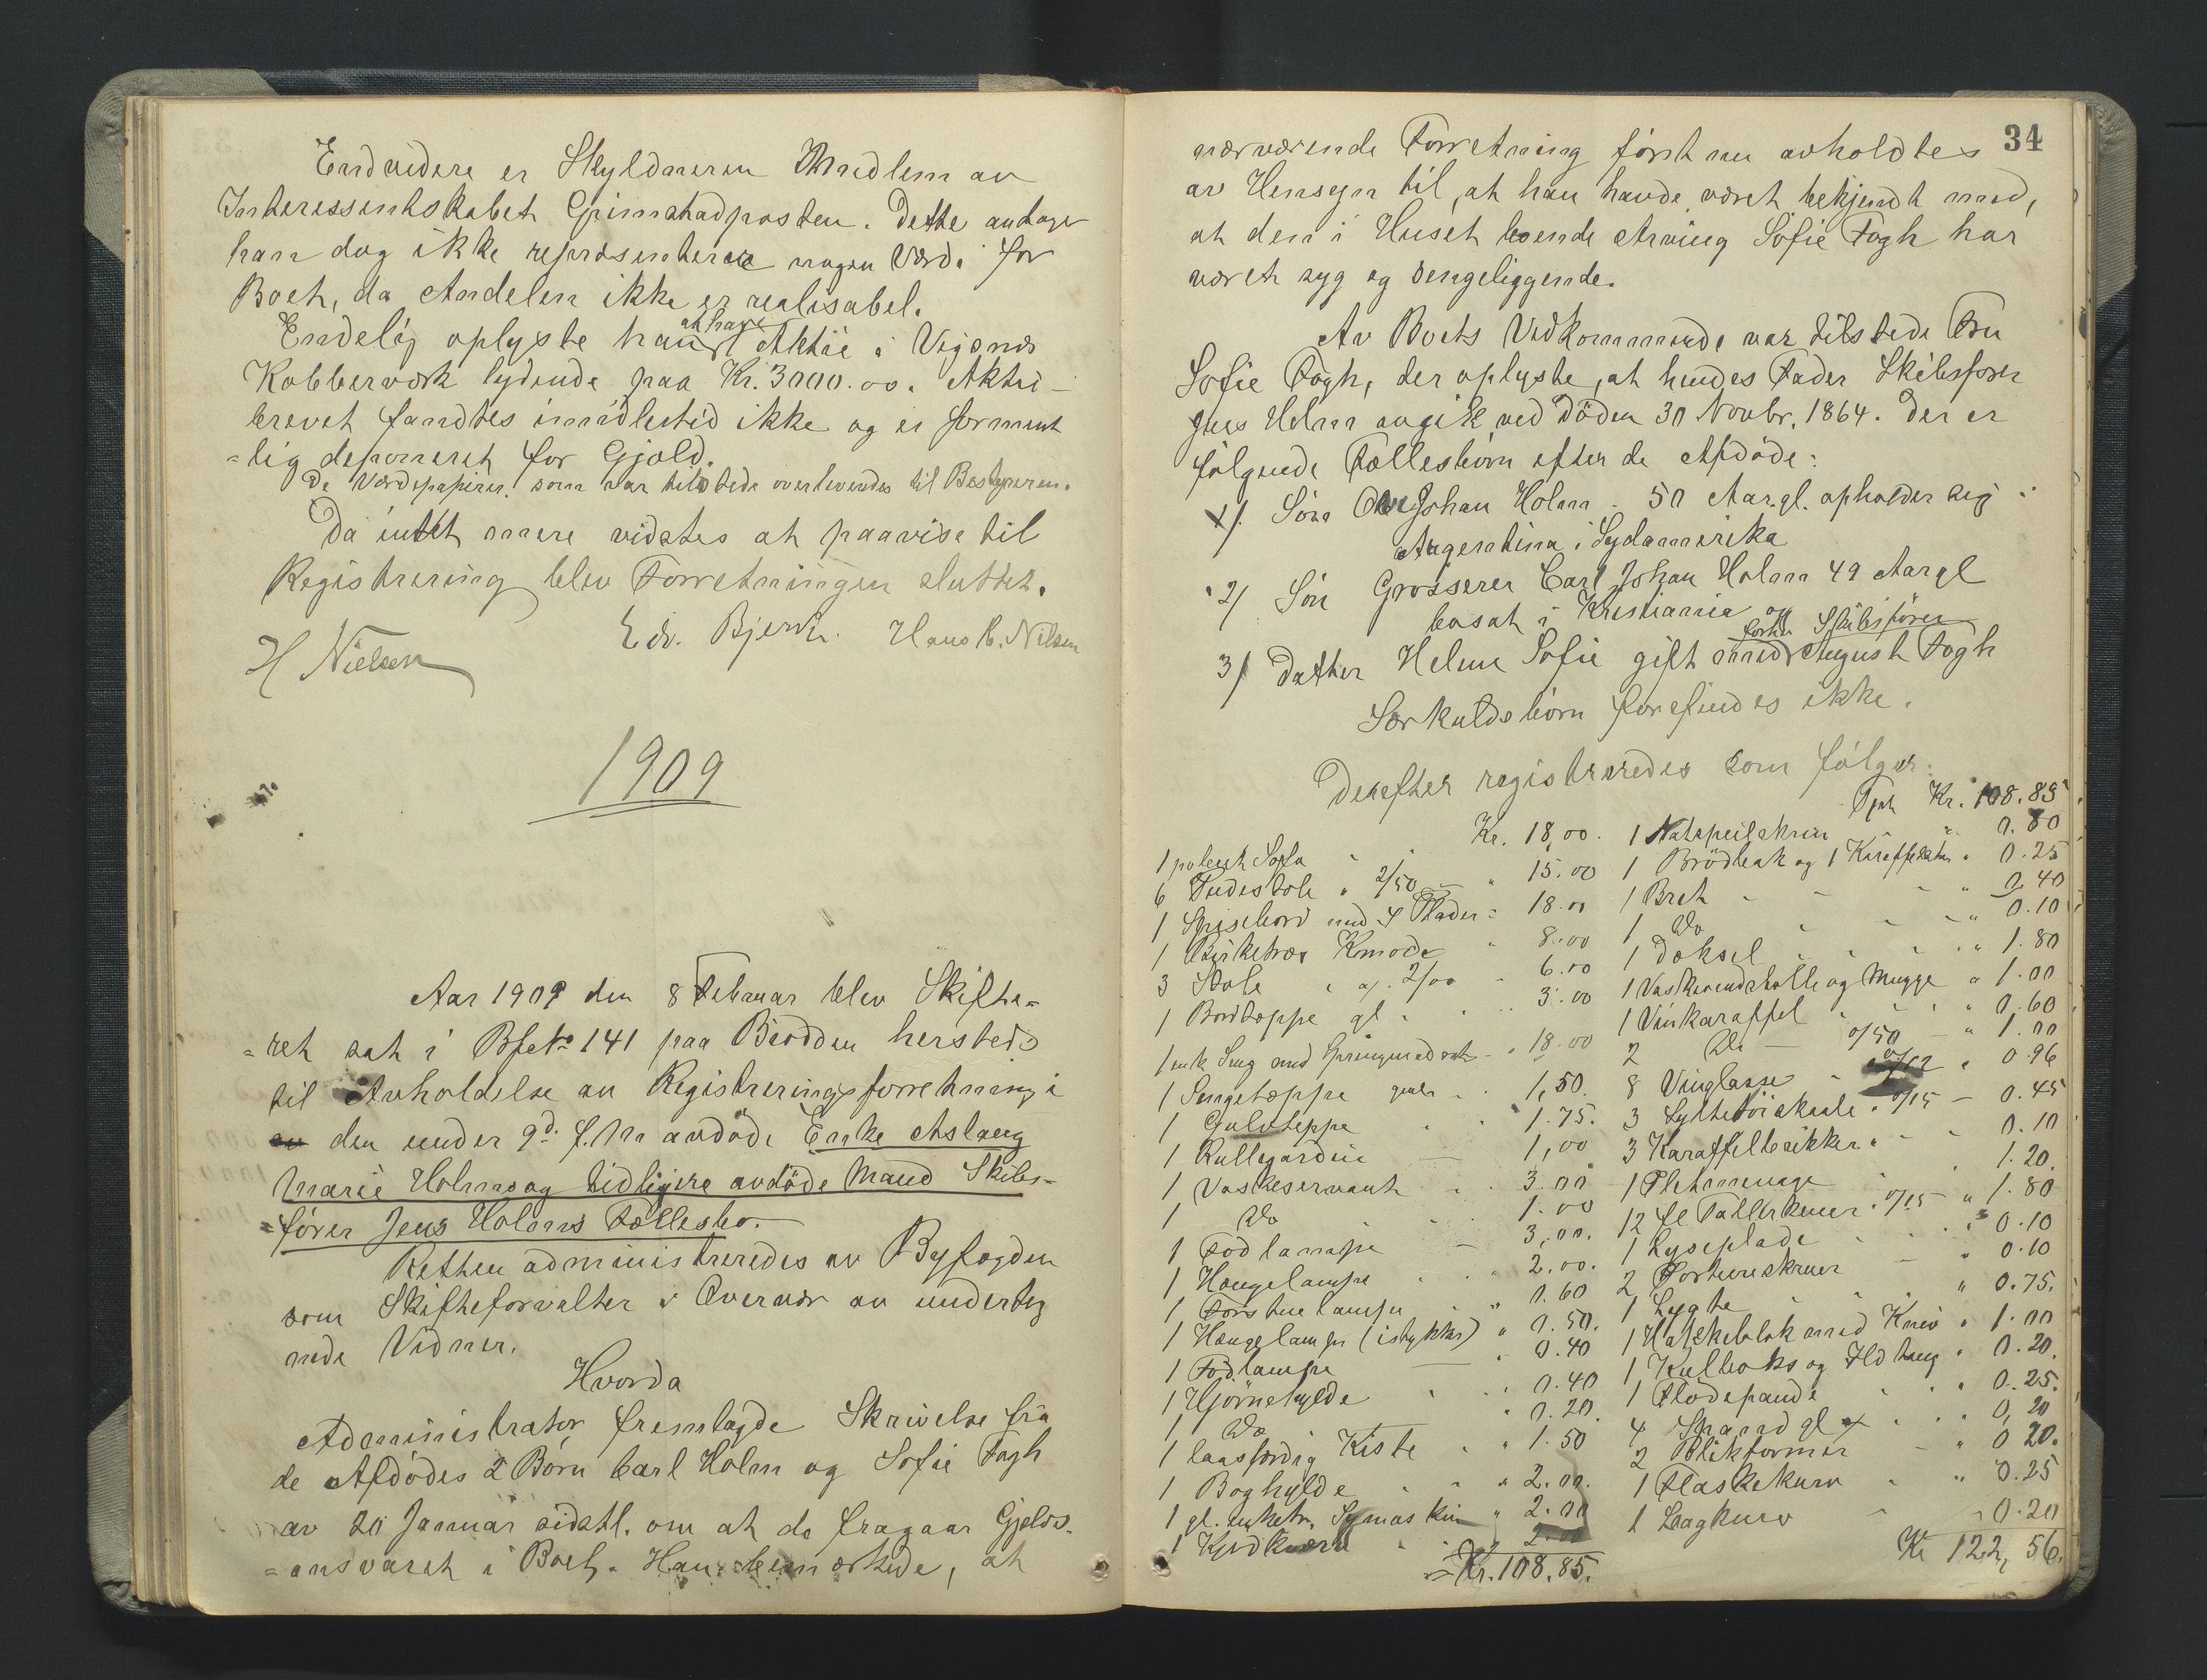 Endvidere er Skyldneren Medlem av
Interessentskabet Grimstadposten. Dette antager
han dog ikke repræsenterer nogen Værdi for
Boet, da Andelen ikke er realisabel.
Endelig oplyste han at have 1 Aktie i Vigsnes
Kobberværk lydende paa Kr. 3000.00. Aktie-
brevet fandtes imidlertid ikke og er forment
=lig deponeret for Gjæld.
De Værdipapirer som var tilstede overleveredes til Bestyreren.
Da intet mere vidstes at paavise til
Registrering blev Forretningen sluttet.
H Nielsen Edv. Bjerke. Hans C. Nilsen
1909
Aar 1909 den 8 Februar blev Skifte=
=ret sat i Bfct No 141 paa Biodden hersteds
til Avholdelse av Registreringsforretning i
den under 9d. f.M avdöde Enke Aslaug
Marie Holms og tidligere avdöde Mand Skibs=
=förer Jens Holms Fællesbo.
Retten administreredes av Byfogden
som Skifteforvalter i Overvær av underteg
nede Vidner.
Hvorda
Administrator fremlagde Skrivelse fra
de Afdödes 2 Börn Carl Holm og Sofie Fogh
av 20 Januar sidstl. om at de fragaar Gjelds-
=ansvaret i Boet. Han bemærkede, at
34
nærværende Forretning först nu avholdtes
av Hensyn til, at han havde været bekjendt med,
at den i Huset boende Arving Sofie Fogh har
været syg og sengeliggende.
Av Boets Vedkommende var tilstede Fru
Sofie Fogh, der oplyste, at hendes Fader Skibsförer
Jens Holm avgik ved Döden 30 Novbr. 1864. Der er
fölgende Fællesbörn efter de Afdöde:
1/. Sön Johan Holm. 50 Aar gl. opholder sig i
Argentina i Sydamerika
2/ Sön Grosserer Carl Johan Holm 49 Aar gl
bosat i Kristiania og
3/ Datter Helene Sofie gift med forhv. Skibsförer August Fogh
Særkuldsbörn forefindes ikke.
Derefter registreredes som fölger:
1 poleret Sofa Kr. 18,00.
6 Pudestole " 2/50 " 15.00
1 Spisebord med 4 Plader " 18.00
1 Birketræs Komode " 8.00
3 Stole a/. 2/00 6.00
1 Bordtæppe gl. 3.00
1 enk Seng med Springmadrats " 18.00
1 Sengetæppe 1,50.
1 Gulvteppe 1.75.
1 Rullegardin 1,00
1 Vaskeservant 3.00
1 Do 1.00
1 Fodlampe 3,00.
1 Hængelampe 2.00.
1 Forstuelampe 0.60
1 Hængelampe (istykker) " 0.50.
1 Fodlampe 0.40
1 Hjörnehylde 0.40
1 Do 0.20.
1 laasfærdig Kiste " 1.50
1 Boghylde " 2.00.
1 gl. Symaskin " 2.00
1 Kjödkværn 2.00
Kr. 108.85.
Tpt Kr. 108.85
1 Natspeilskrin 0.80
1 Brödbak og 1 " 0.25
1 Bret " 0.40
1 Do " 0.10
1 Döksel " 1.80
1 Vaskevandsbolle og Mugge " 1.00
1 Vinkaraffel " 0.60
2 Do 0/50 " 1.00
8 Vinglasse 0/12 " 0.96
3 Syltetöiskaale 0/15 0.45
3 Karaffelbrikker 0.10
1 Pletmenage 1.20.
12 fl Tallerkener 0/15 " 1.80
1 Lyseplade " 0.10
2 Portiereskruer " 0.10
1 Lygte " 0.75.
1 Hakkeblok med Kniv " 1.00
1 Kulboks og Ildtang " 0.20.
1 Flödepande " 0.25.
4 Spand gl 0,20
2 Blikformer " 0 20.
1 Flaskekurv " 0.25
1 Laagkurv " 0.20
Kr 122,56.